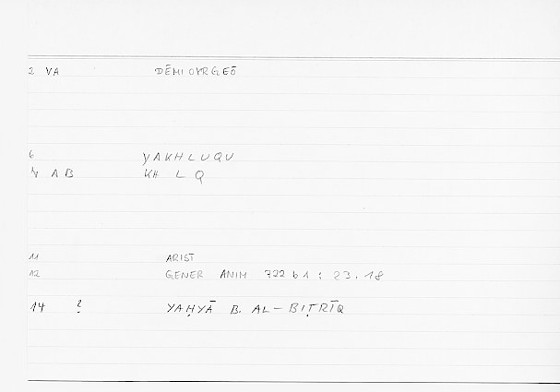 2 VA DĒMIOYRGEŌ
6 YAKHLUQU
AB KH L Q
11 ARIST
12 GENER ANIM 722 b1 : 23.18
14 ? YAḤYĀ B. AL-BIṬRĪQ